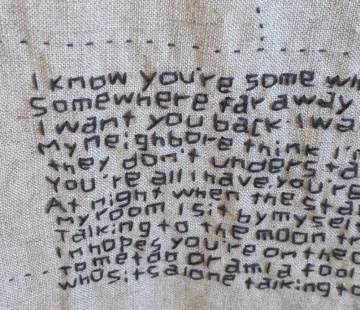 I know you're some wh
Somewhere far away
I want you back I wa
My neighbore think I'
they don't unders ta
You're all I have you're
At night when the sta
my room I sit by mysel
Talking to the moon t
In hopes you're on the o
to me too or am I a fool
who sits alone talking to